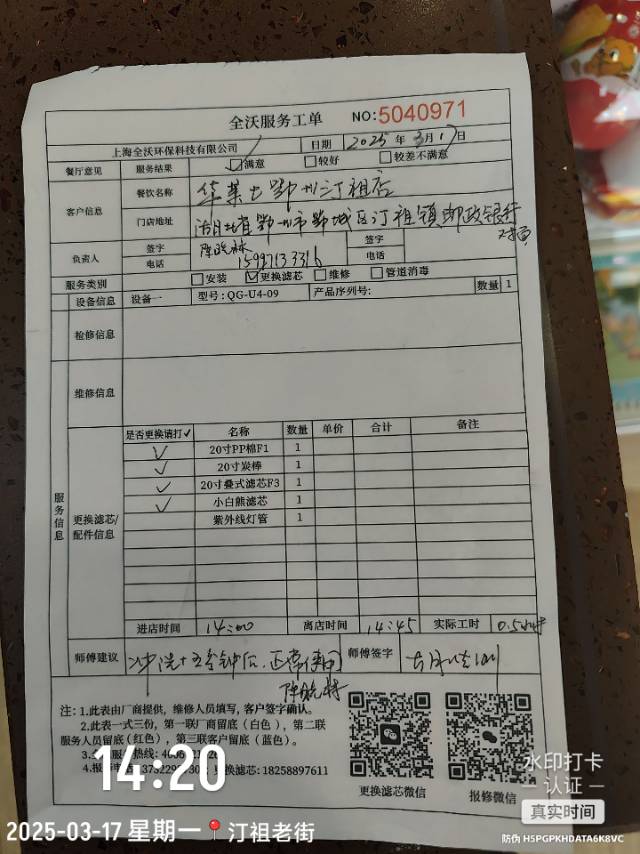 全沃服务工单 NO:5040971
上海全沃环保科技有限公司 日期 2025 年 3月17日
餐厅意见 服务结果 ☑满意 □较好 □较差不满意
客户信息 餐饮名称 华莱士鄂州汀祖店
门店地址 湖北省鄂州市鄂城区汀祖镇邮政银行对面
负责人 签字 签字
电话 15997133316 电话
服务类别 □安装 ☑更换滤芯 □维修 □管道消毒
设备信息 设备一 型号:QG-U4-09 产品序列号: 数量 1
检修信息
维修信息
服务信息
更换滤芯/配件信息
是否更换请打✓ 名称 数量 单价 合计 备注
✓ 20寸PP棉F1 1
✓ 20寸炭棒 1
✓ 20寸叠式滤芯F3 1
✓ 小白熊滤芯 1
紫外线灯管 1
进店时间 14:00 离店时间 14:45 实际工时 0.5小时
师傅建议 冲洗十五分钟后.正常使用 师傅签字
注: 1.此表由厂商提供, 维修人员填写, 客户签字确认。
2.此表一式三份, 第一联厂商留底 (白色) , 第二联
服务人员留底(红色), 第三联客户留底 (蓝色)。
更换滤芯: 18258897611
更换滤芯微信 报修微信
14:20
2025-03-17 星期一 汀祖老街
水印打卡
认证
真实时间
防伪 H5PGPKHDATA6K8VC